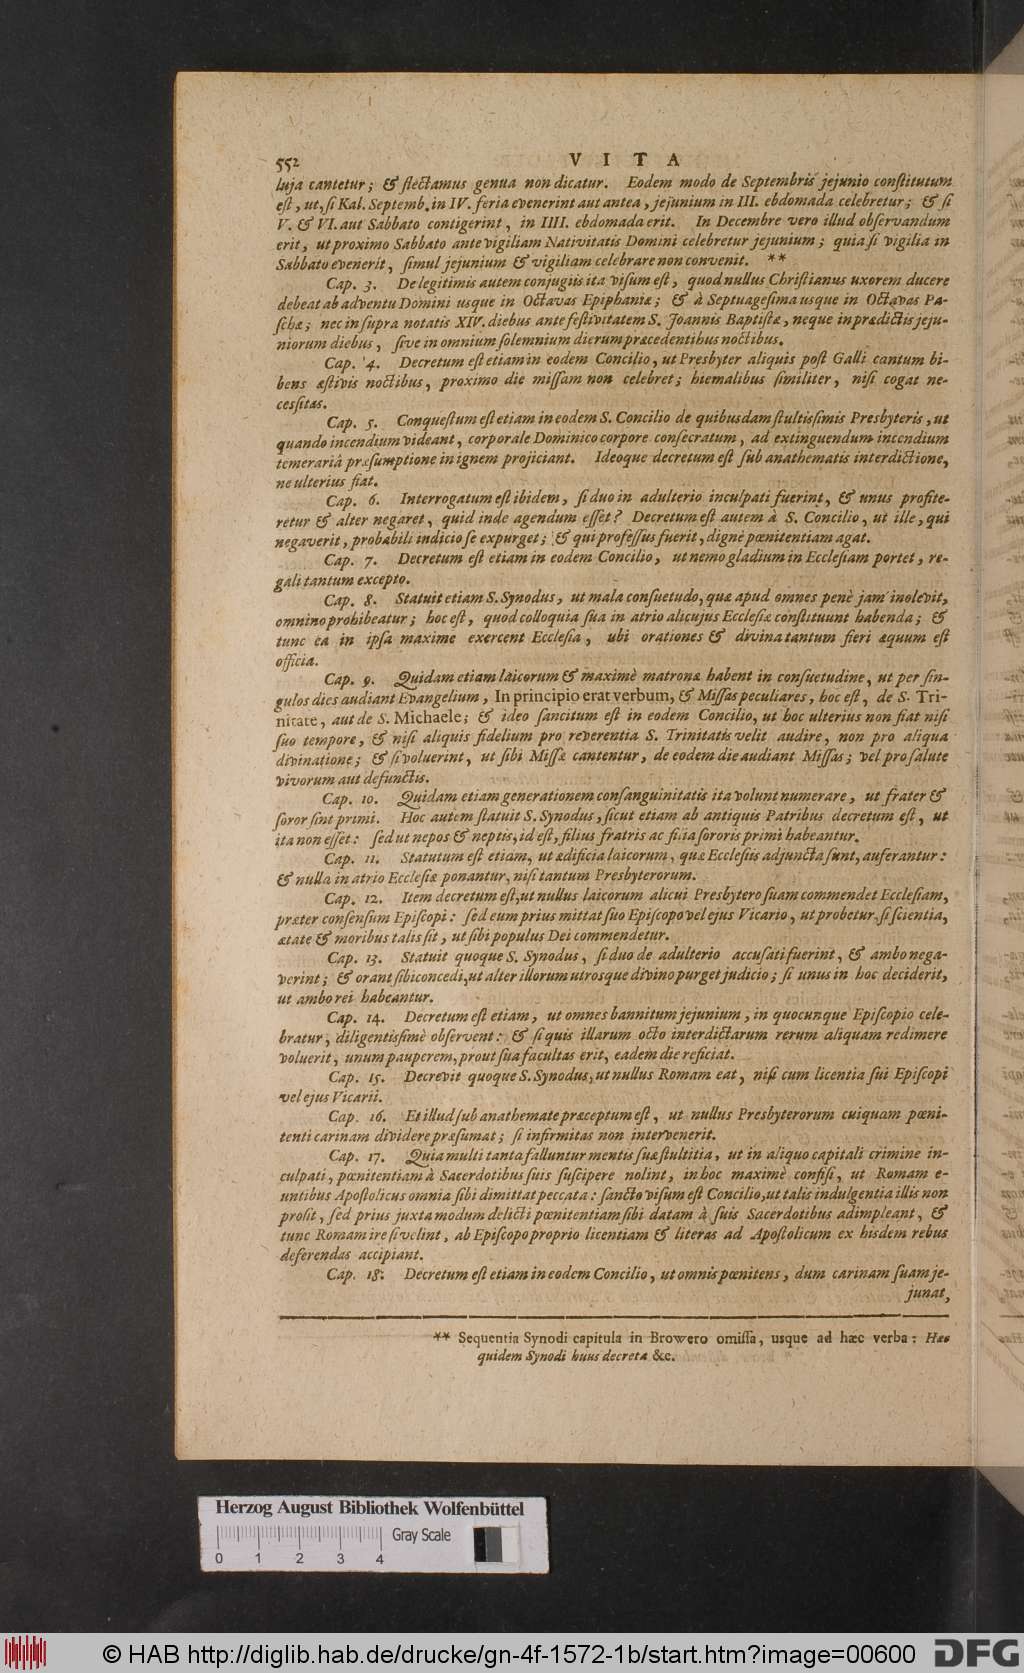 552 VITA
luja cantetur; & flectamus genua non dicatur. Eodem modo de Septembris jejunio constitutum
est, ut, si Kal. Septemb. in IV. feria evenerint aut antea, jejunium in III. ebdomada celebretur; & si
V. & VI. aut Sabbato contigerint, in IIII. ebdomada erit. In Decembre vero illud observandum
erit, ut proximo Sabbato ante vigiliam Nativitatis Domini celebretur jejunium; quia si vigilia in
Sabbato evenerit, simul jejunium & vigiliam celebrare non convenit. **
Cap. 3. De legitimis autem conjugiis ita visum est, quod nullus Christianus uxorem ducere
debeat ab adventu Domini usque in Octavas Epiphaniæ; & à Septuagesima usque in Octavas Pa-
schæ; nec in supra notatis XIV. diebus ante festivitatem S. Joannis Baptistæ, neque in prædictis jeju-
niorum diebus, sive in omnium solemnium dierum præcedentibus noctibus.
Cap. 4. Decretum est etiam in eodem Concilio, ut Presbyter aliquis post Galli cantum bi-
bens æstivis noctibus, proximo die missam non celebret; hiemalibus similiter, nisi cogat ne-
cessitas.
Cap. 5. Conquestum est etiam in eodem S. Concilio de quibusdam stultissimis Presbyteris, ut
quando incendium videant, corporale Dominico corpore consecratum, ad extinguendum incendium
temerariâ præsumptione in ignem projiciant. Ideoque decretum est sub anathematis interdictione,
ne ulterius fiat.
Cap. 6. Interrogatum est ibidem, si duo in adulterio inculpati fuerint, & unus profite-
retur & alter negaret, quid inde agendum esset? Decretum est autem à S. Concilio, ut ille, qui
negaverit, probabili indicio se expurget; & qui professus fuerit, dignè pœnitentiam agat.
Cap. 7. Decretum est etiam in eodem Concilio, ut nemo gladium in Ecclesiam portet, re-
gali tantum excepto.
Cap. 8. Statuit etiam S. Synodus, ut mala consuetudo, quæ apud omnes penè jam inolevit,
omnino prohibeatur; hoc est, quod colloquia sua in atrio alicujus Ecclesiæ constituunt habenda; &
tunc ea in ipsa maxime exercent Ecclesia, ubi orationes & divina tantum fieri æquum est
officia.
Cap. 9. Quidam etiam laicorum & maximè matronæ habent in consuetudine, ut per sin-
gulos dies audiant Evangelium, In principio erat verbum, & Missas peculiares, hoc est, de S. Tri-
nitate, aut de S. Michaele; & ideo sancitum est in eodem Concilio, ut hoc ulterius non fiat nisi
suo tempore, & nisi aliquis fidelium pro reverentia S. Trinitatis velit audire, non pro aliqua
divinatione; & si voluerint, ut sibi Missæ cantentur, de eodem die audiant Missas; vel pro salute
vivorum aut defunctis.
Cap. 10. Quidam etiam generationem consanguinitatis ita volunt numerare, ut frater &
soror sint primi. Hoc autem statuit S. Synodus, sicut etiam ab antiquis Patribus decretum est, ut
ita non esset: sed ut nepos & neptis, id est, filius fratris ac filia sororis primi habeantur.
Cap. 11. Statutum est etiam, ut ædificia laicorum, quæ Ecclesiis adjuncta sunt, auferantur:
& nulla in atrio Ecclesiæ ponantur, nisi tantum Presbyterorum.
Cap. 12. Item decretum est, ut nullus laicorum alicui Presbytero suam commendet Ecclesiam,
præter consensum Episcopi: sed eum prius mittat suo Episcopo vel ejus Vicario, ut probetur, si scientia,
ætate & moribus talis sit, ut sibi populus Dei commendetur.
Cap. 13. Statuit quoque S. Synodus, si duo de adulterio accusati fuerint, & ambo nega-
verint; & orant sibi concedi, ut alter illorum utrosque divino purget judicio; si unus in hoc deciderit,
ut ambo rei habeantur.
Cap. 14. Decretum est etiam, ut omnes bannitum jejunium, in quocunque Episcopio cele-
bratur, diligentissimè observent: & si quis illarum octo interdictarum rerum aliquam redimere
voluerit, unum pauperem, prout sua facultas erit, eadem die reficiat.
Cap. 15. Decrevit quoque S. Synodus, ut nullus Romam eat, nisi cum licentia sui Episcopi
vel ejus Vicarii.
Cap. 16. Et illud sub anathemate præceptum est, ut nullus Presbyterorum cuiquam pœni-
tenti carinam dividere præsumat; si infirmitas non intervenerit.
Cap. 17. Quia multi tanta falluntur mentis suæ stultitia, ut in aliquo capitali crimine in-
culpati, pœnitentiam à Sacerdotibus suis suscipere nolint, in hoc maximè confisi, ut Romam e-
untibus Apostolicus omnia sibi dimittat peccata: sancto visum est Concilio, ut talis indulgentia illis non
prosit, sed prius juxta modum delicti pœnitentiam sibi datam à suis Sacerdotibus adimpleant, &
tunc Romam ire si velint, ab Episcopo proprio licentiam & literas ad Apostolicum ex hisdem rebus
deferendas accipiant.
Cap. 18. Decretum est etiam in eodem Concilio, ut omnis pœnitens, dum carinam suam je-
junat,
** Sequentia Synodi capitula in Browero omissa, usque ad hæc verba: Hæc
quidem Synodi huus decreta &c.
Herzog August Bibliothek Wolfenbüttel
Gray Scale
0 1 2 3 4
© HAB http://diglib.hab.de/drucke/gn-4f-1572-1b/start.htm?image=00600 DFG